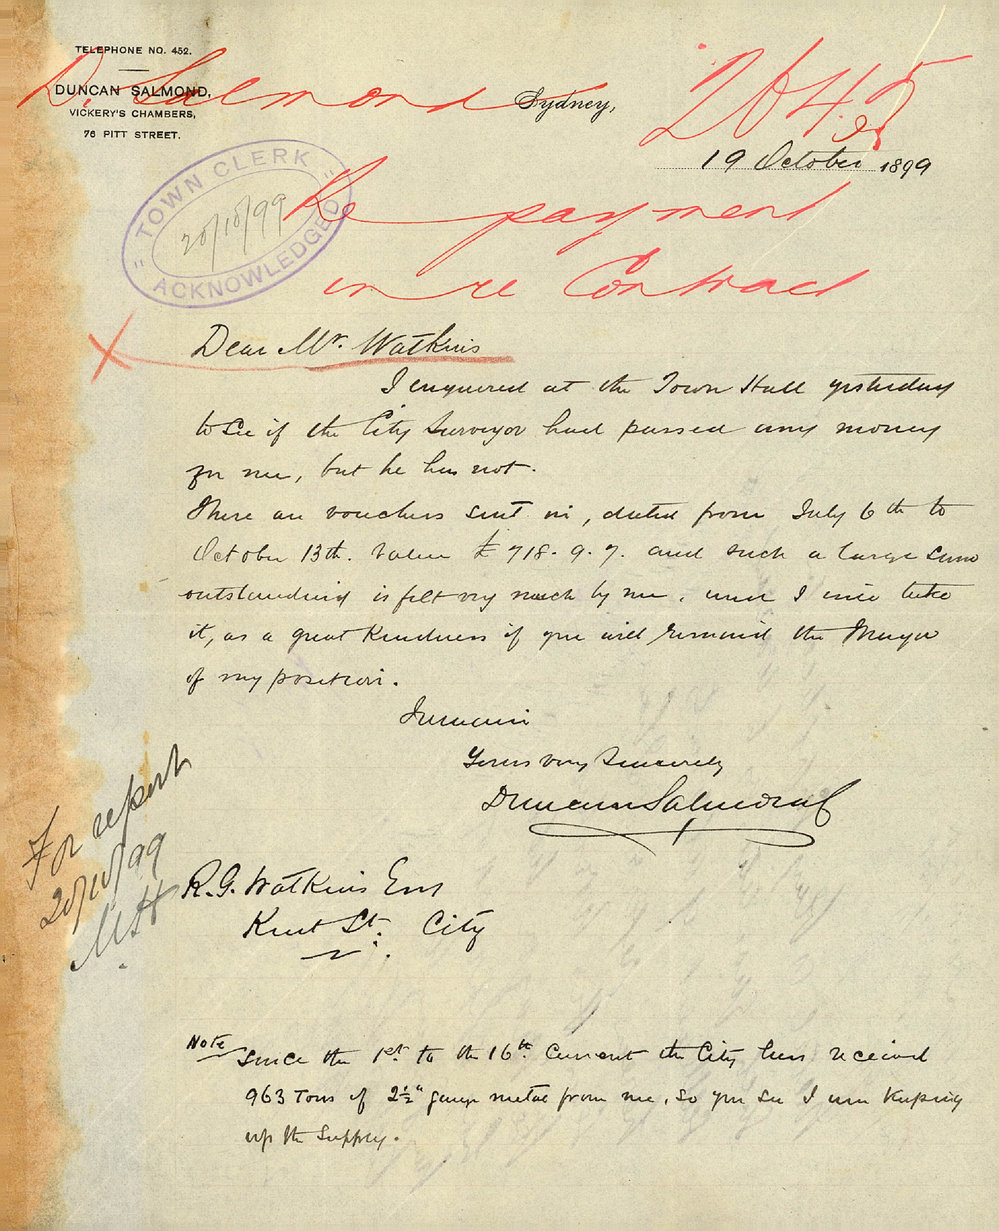 TELEPHONE NO. 452.
DUNCAN SALMOND,
VICKERY'S CHAMBERS,
76 PITT STREET.
D. Salmond
Sydney,
2645
99
19 October 1899
"TOWN CLERK"
20/10/99
ACKNOWLEDGED
Re payment
in re Contract
Dear Mr. Watkins
I enquired at the Town Hall yesterday
to see if the City Surveyor had passed any money
for me, but he has not.
There are vouchers sent in, dated from July 6th to
October 13th. Value £718.9.7. and such a large sum
outstanding is felt very much by me, and I will take
it, as a great kindness if you will remind the Mayor
of my position.
I remain
Yours very Sincerely
Duncan Salmond
For report
20/10/99
R.G. Watkins Esq
Kent St. City
Note
Since the 1st to the 16th Current the City has received
963 Tons of 2½" gauge metal from me, so you see I am keeping
up the supply.